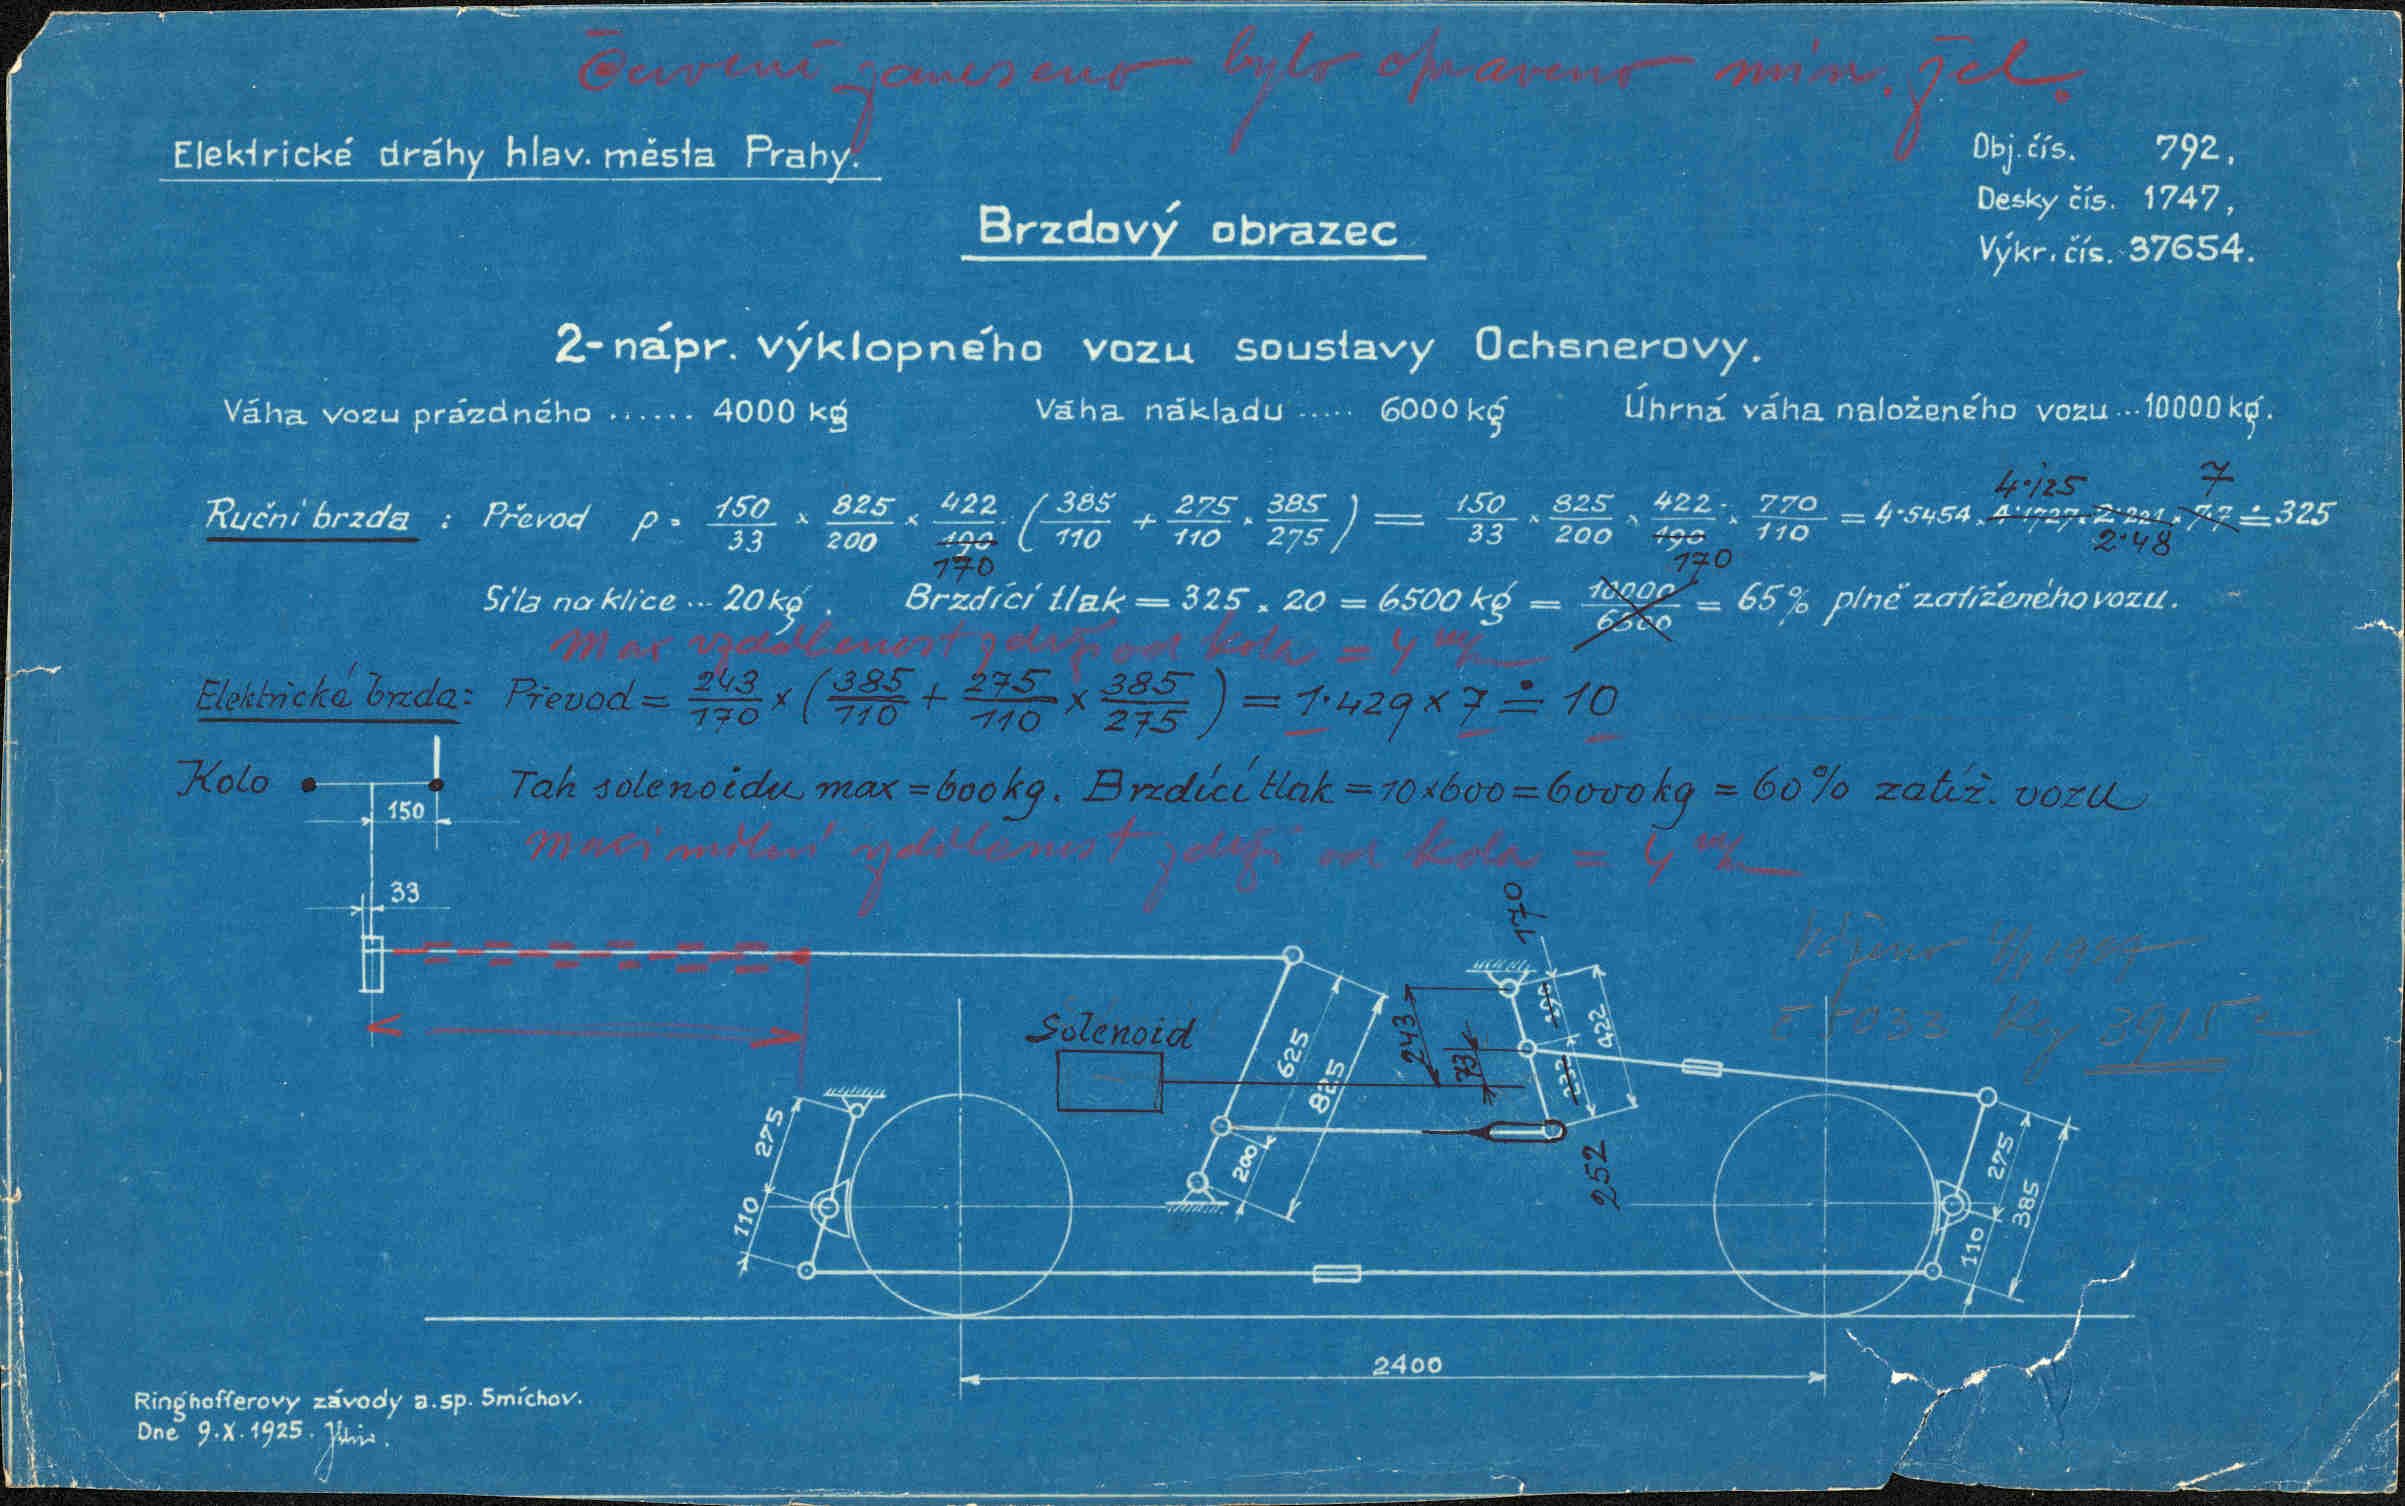 Červeně zaneseno bylo opraveno min. žel.
Elektrické dráhy hlav. města Prahy.
Obj. čís. 792,
Desky čís. 1747,
Výkr. čís. 37654.
Brzdový obrazec
2-nápr. výklopného vozu soustavy Ochsnerovy.
Váha vozu prázdného ...... 4000 kg Váha nákladu ..... 6000 kg Úhrná váha naloženého vozu ... 10000 kg.
4·125 7
Ruční brzda : Převod p = 150/33 × 825/200 × 422/190 · (385/110 + 275/110 × 385/275) = 150/33 × 825/200 × 422/190 × 770/110 = 4·5454 × 4·1727 × 2·221 × 7,7 ≐ 325
170 170 2·48
Síla na klice ... 20 kg. Brzdící tlak = 325 × 20 = 6500 kg = 10000/6500 = 65% plně zatíženého vozu.
Max vzdálenost zdrží od kola = 4 m/m
Elektrická brzda: Převod = 243/170 × (385/110 + 275/110 × 385/275) = 1·429 × 7 ≐ 10
Kolo
Tah solenoidu max = 600 kg. Brzdící tlak = 10×600 = 6000 kg = 60% zatíž. vozu
150
vzdálenost zdrží od kola = 4 m/m
33
170
190
422
243
73
232
252
Solenoid
625
825
200
275
110
275
385
110
3915
2400
Ringhofferovy závody a. sp. Smíchov.
Dne 9.X.1925.